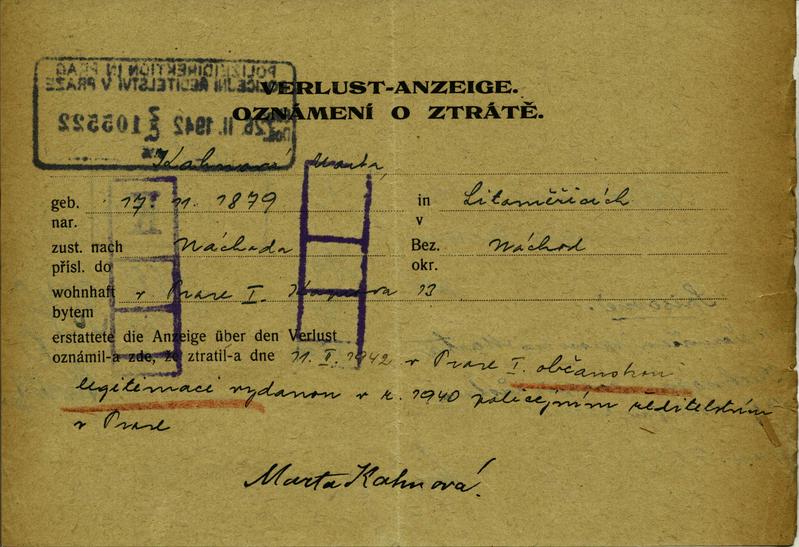 POLIZEIDIREKTION IN PRAG
POLICEJNÍ ŘEDITELSTVÍ V PRAZE
26. II. 1942 105522
VERLUST-ANZEIGE.
OZNÁMENÍ O ZTRÁTĚ.
Kahnová Marta,
geb. 17. 11. 1879 in Litoměřicích
nar. v
zust. nach Náchoda Bez. Náchod
přísl. do okr.
wohnhaft v Praze I. 13
bytem
erstattete die Anzeige über den Verlust
oznámil-a zde, že ztratil-a dne 11. I. 1942 v Praze I. občanskou
legitimaci vydanou v r. 1940 policejním ředitelstvím
v Praze
Marta Kahnová.